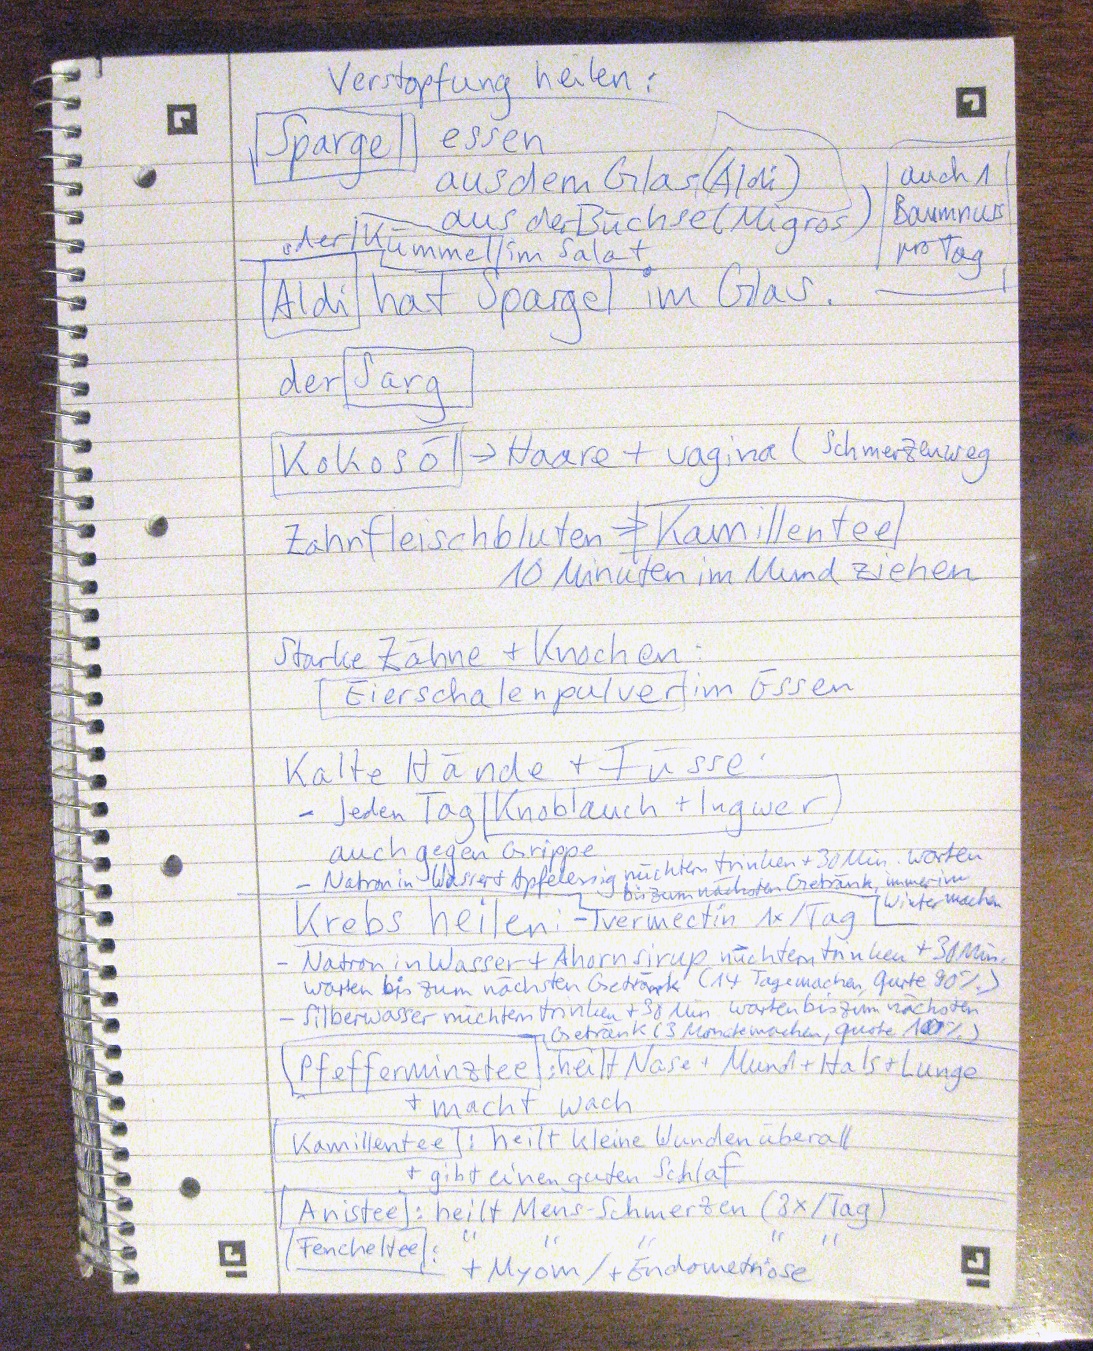 Verstopfung heilen:
Spargel essen
aus dem Glas (Aldi)
aus der Büchse (Migros)
auch 1
Baumnuss
pro Tag
oder Kümmel im Salat
Aldi hat Spargel im Glas.
der Sarg
Kokosöl → Haare + vagina (Schmerzen weg
Zahnfleischbluten → Kamillentee
10 Minuten im Mund ziehen
Starke Zähne + Knochen:
Eierschalenpulver im Essen
Kalte Hände + Füsse:
- Jeden Tag Knoblauch + Ingwer
auch gegen Grippe
- Natron in Wasser + Apfelessig nüchtern trinken + 30 Min. warten
bis zum nächsten Getränk, immer im
Winter machen
Krebs heilen: - Ivermectin 1x/Tag
- Natron in Wasser + Ahornsirup nüchtern trinken + 30 Min.
warten bis zum nächsten Getränk (14 Tage machen, Quote 90%)
- Silberwasser nüchtern trinken + 30 Min. warten bis zum nächsten
Getränk (3 Monate machen, quote 100%)
Pfefferminztee: heilt Nase + Mund + Hals + Lunge
+ macht wach
Kamillentee: heilt kleine Wunden überall
+ gibt einen guten Schlaf
Anistee: heilt Mens-Schmerzen (3x/Tag)
Fencheltee: " " " " "
+ Myom / + Endometriose